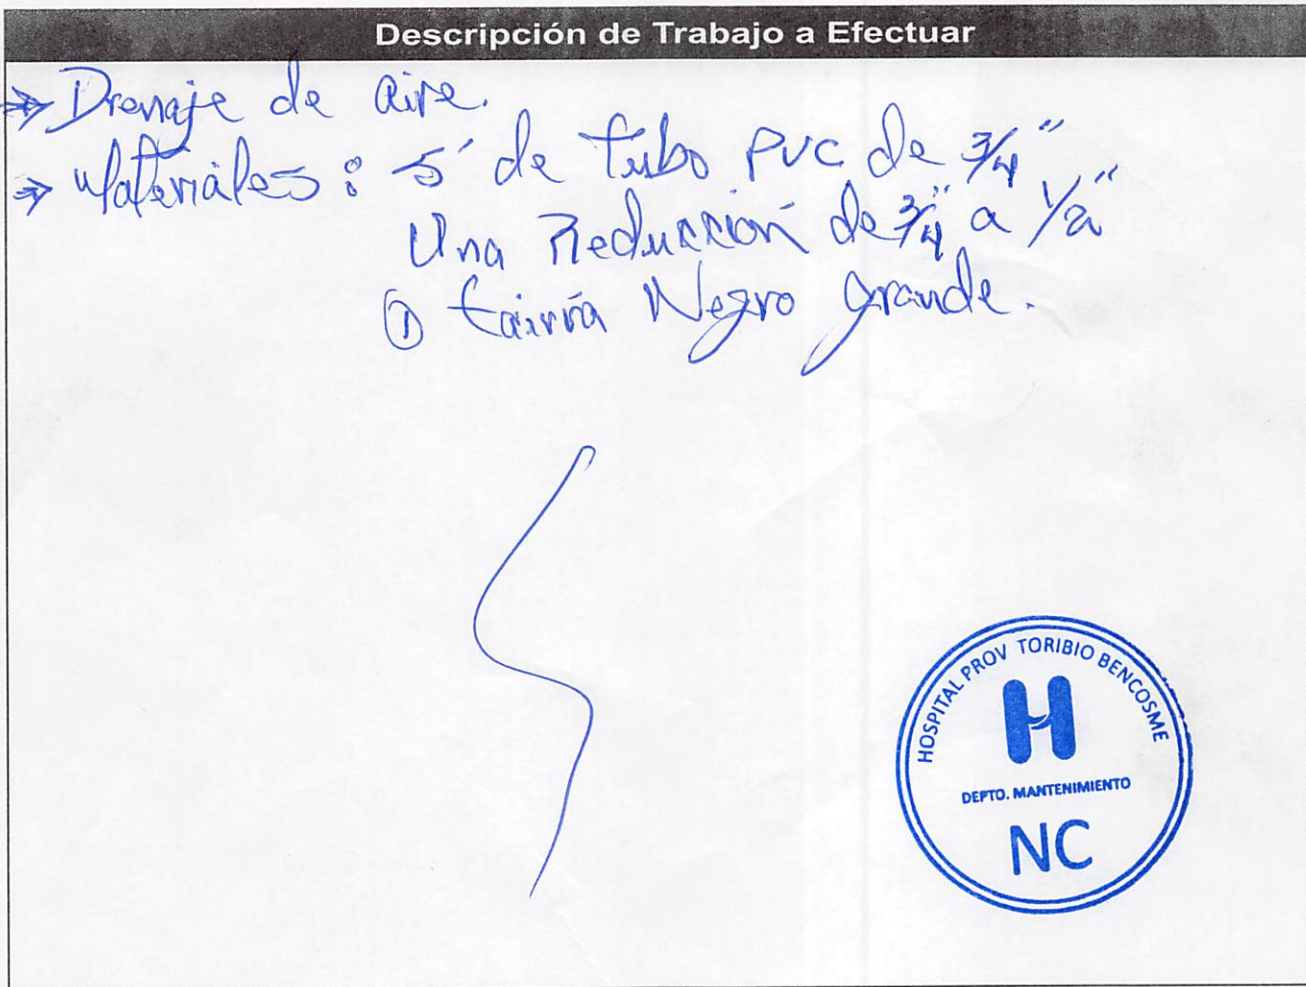 Descripción de Trabajo a Efectuar
⇒ Drenaje de aire.
⇒ Materiales: 5' de tubo PVC de 3/4"
Una Reducción de 3/4" a 1/2"
① Negro grande.
HOSPITAL PROV TORIBIO BENCOSME
H
DEPTO. MANTENIMIENTO
NC